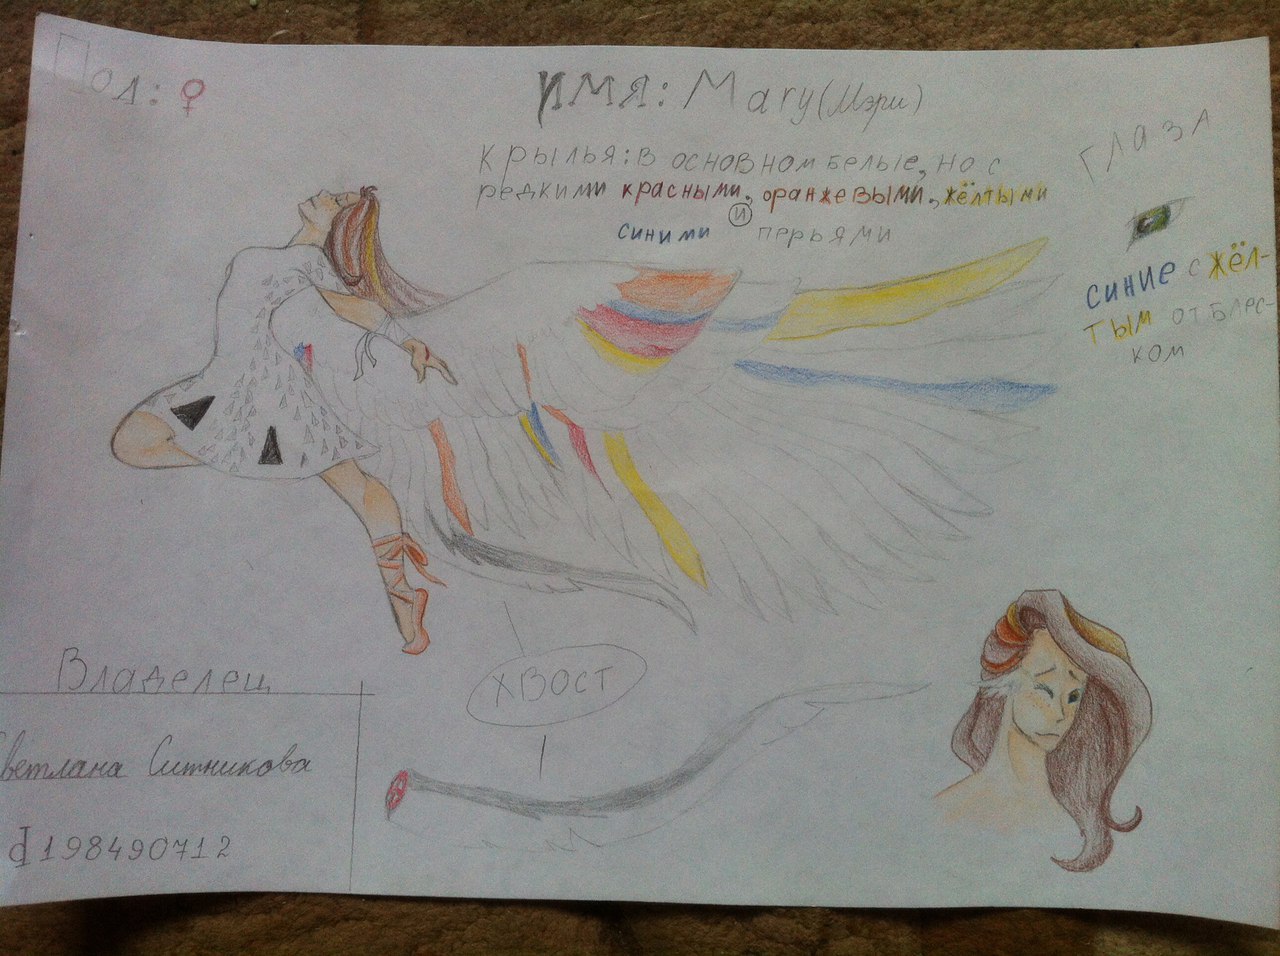 Пол: ♀
ИМЯ: Mary (Мэри)
Крылья: в основном белые, но с
редкими красными, оранжевыми, жёлтыми
и
синими перьями
ГЛАЗА
синие с жёл-
тым отблес-
ком
ХВОСТ
Владелец
Светлана Ситникова
d198490712